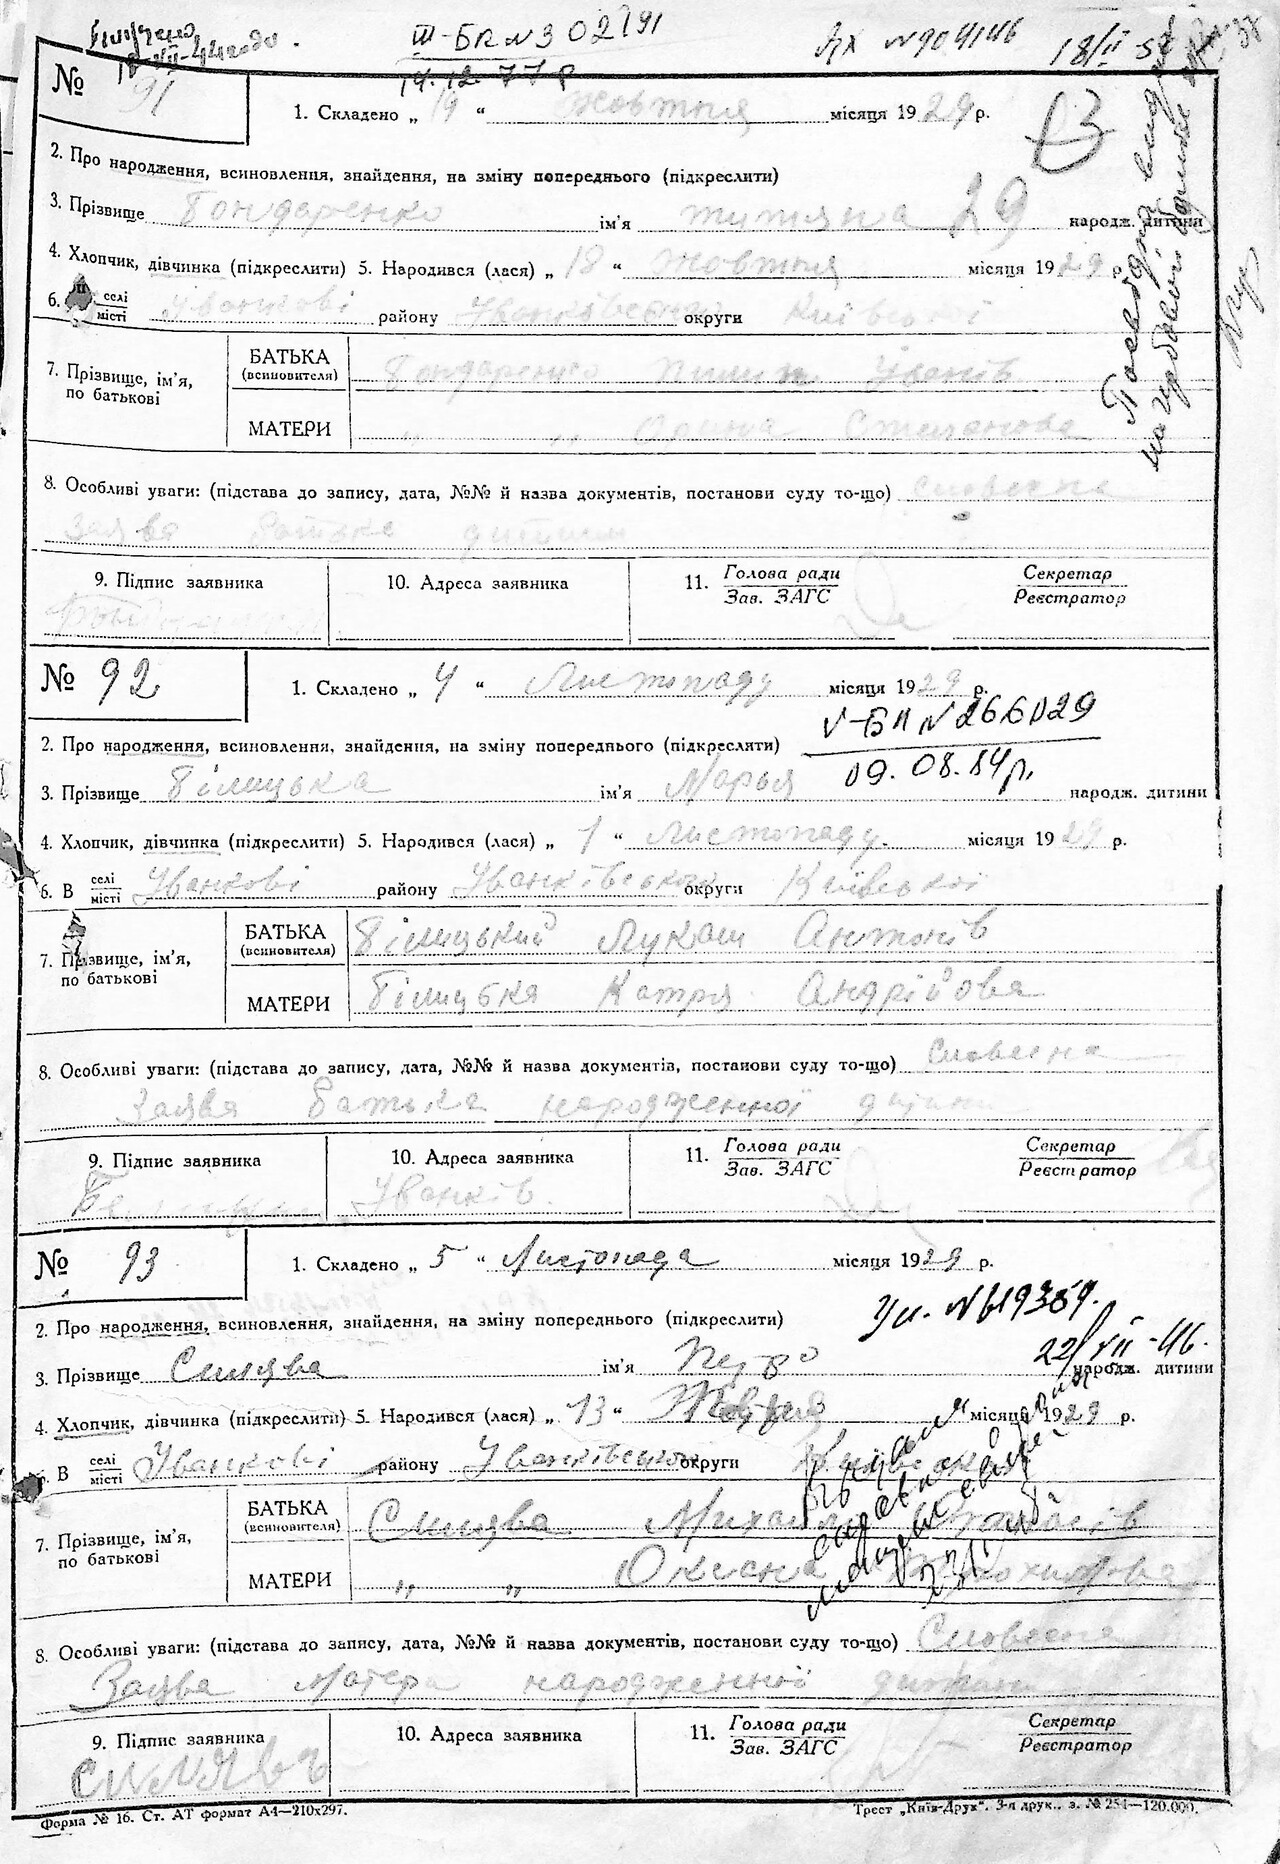 Ш-БК № 302791
14.12.77р
№ 91
1. Складено „ 19 “ жовтня місяця 1929 р.
2. Про народження, всиновлення, знайдення, на зміну попереднього (підкреслити)
3. Прізвище Бондаренко ім'я титяна 29 народж. дитини
4. Хлопчик, дівчинка (підкреслити) 5. Народився (лася) „ 18 “ жовтня місяця 1929 р.
6. селі/місті Іванкові району Іванківської округи Київської
7. Прізвище, ім'я, по батькові
БАТЬКА (всиновителя) Бондаренко Пилип
МАТЕРИ „ „ Орина Степанова
8. Особливі уваги: (підстава до запису, дата, №№ й назва документів, постанови суду то-що) словесна
заява батька дитини
9. Підпис заявника 10. Адреса заявника 11. Голова ради/Зав. ЗАГС Секретар/Реєстратор
№ 92
1. Складено „ 4 “ Листопаду місяця 1929 р.
V-БП № 266029
2. Про народження, всиновлення, знайдення, на зміну попереднього (підкреслити)
09.08.84р.
3. Прізвище Білицька ім'я Марья народж. дитини
4. Хлопчик, дівчинка (підкреслити) 5. Народився (лася) „ 1 “ Листопаду місяця 1929 р.
6. В селі/місті Іванкові району Іванківського округи Київської
7. Прізвище, ім'я, по батькові
БАТЬКА (всиновителя) Білицький Лукаш Антонів
МАТЕРИ Білицька Катря Андрійова
8. Особливі уваги: (підстава до запису, дата, №№ й назва документів, постанови суду то-що) Словесна
Заява батька народженної дитини
9. Підпис заявника 10. Адреса заявника 11. Голова ради/Зав. ЗАГС Секретар/Реєстратор
Іванків
№ 93
1. Складено „ 5 “ Листопада місяця 1929 р.
2. Про народження, всиновлення, знайдення, на зміну попереднього (підкреслити)
22/VII-46.
3. Прізвище Силява ім'я Петро народж. дитини
4. Хлопчик, дівчинка (підкреслити) 5. Народився (лася) „ 13 “ Жовтня місяця 1929 р.
6. В селі/місті Іванкові району Іванківського округи Київської
7. Прізвище, ім'я, по батькові
БАТЬКА (всиновителя) Силява Михайло
МАТЕРИ „ „ Оксана
8. Особливі уваги: (підстава до запису, дата, №№ й назва документів, постанови суду то-що) Словесна
Заява Матера народженної дитини
9. Підпис заявника 10. Адреса заявника 11. Голова ради/Зав. ЗАГС Секретар/Реєстратор
Силявъ
Форма № 16. Ст. АТ формат А4—210x297.
Трест „Київ-Друк“. 3-я друк., з. № 254—120.000.